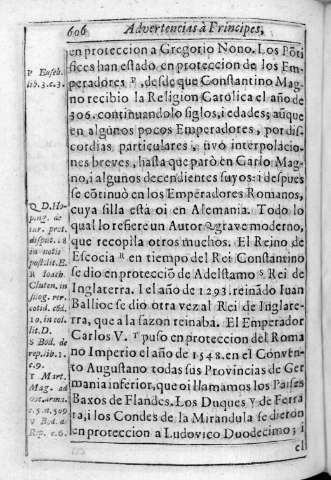 606 Advertencias à Principes,
en proteccion a Gregorio Nono. Los Põti
fices han estado en proteccion de los Em-
peradores P, desde que Constantino Mag-
no recibio la Religion Catolica el año de
306. continuandolo siglos, i edades; aũque
en algũnos pocos Emperadores, por dis-
cordias particulares, uvo interpolacio-
nes breves, hasta que parò en Carlo Mag-
no, i algunos decendientes suyos: i despues
se cõtinuò en los Emperadores Romanos,
cuya silla està oi en Alemania. Todo lo
qual lo refiere un Autor Q grave moderno,
que recopila otros muchos. El Reino de
Escocia R en tiempo del Rei Constantino
se dio en protecciõ de Adelstamo S Rei de
Inglaterra. I el año de 1293. reinãdo Iuan
Ballioc se dio otra vez al Rei de Inglate-
rra, que a la sazon reinaba. El Emperador
Carlos V. T puso en proteccion del Roma
no Imperio el año de 1548. en el Convẽn
to Augustano todas sus Provincias de Ger
mania inferior, que oi llamamos los Paises
Baxos de Flandes. Los Duques V de Ferra
ra, i los Condes de la Mirandula se dierõn
en proteccion a Ludovico Duodecimo; i
el
P Euseb.
lib. 3. c. 3.
Q D. Ho-
ping. de
iur. prot.
disput. 18
in notis
post lit. E.
R Ioach.
Cluten. in
silog. rer.
cotid. cõd.
10. in col.
lit. D.
S Bod. de
rep. lib. 1.
c. 9.
T Mart.
Mag. ad
c. 5. n. 509
V Bod. de
Rep. c. 6.